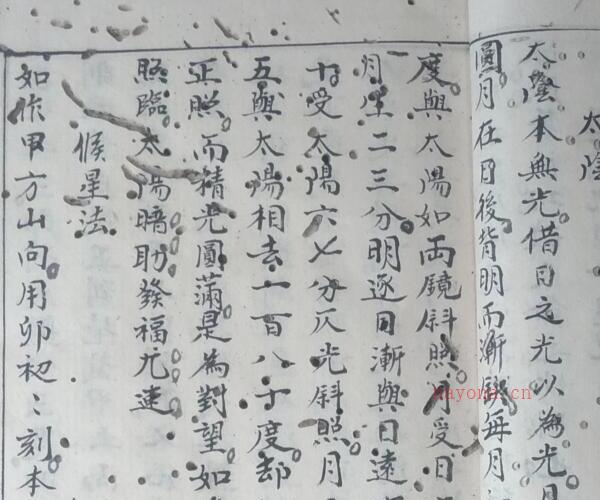 太陰
太陰本無光借日之光以為光月
圓月在日後背明而漸 每月
度與太陽如両鏡斜照月受日
月生二三分明逐日漸與日遠
十受太陽六七分仄光斜照月
五與太陽相去一百八十度却
正照而精光圓滿是為對望如
照臨太陽暗助發福尤速
候星法
如作甲方山向用卯初〻刻本
nayona.cn